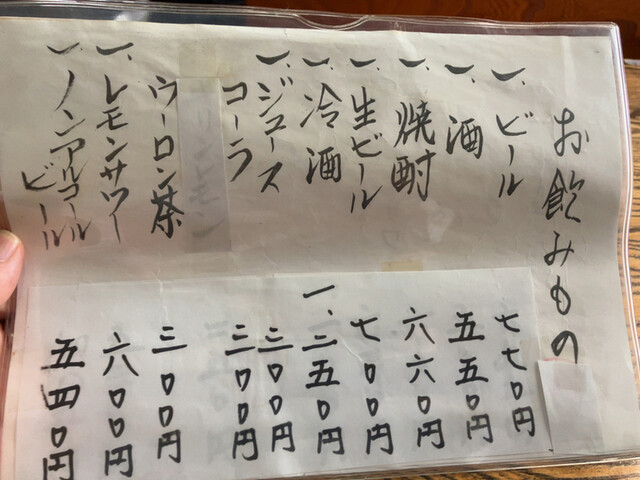 お飲みもの
一、ビール 七七〇円
一、酒 五五〇円
一、焼酎 六六〇円
一、生ビール 七〇〇円
一、冷酒 一、二五〇円
一、ジュース 三〇〇円
コーラ 三〇〇円
ウーロン茶 三〇〇円
一、レモンサワー 六〇〇円
一、ノンアルコール
ビール 五四〇円